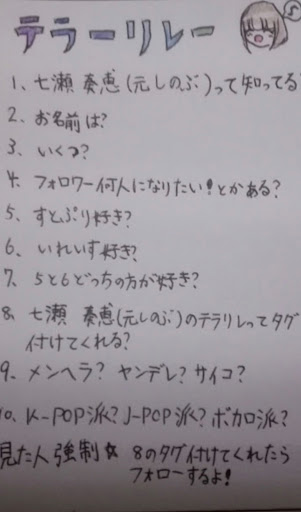 テラーリレー
1、七瀬 奏恵(元しのぶ)って知ってる
2、お名前は?
3、いくつ?
4、フォロワー何人になりたい!とかある?
5、すとぷり好き?
6、いれいす好き?
7、5と6どっちの方が好き?
8、七瀬 奏恵(元しのぶ)のテラリレってタグ
付けてくれる?
9、メンヘラ?ヤンデレ?サイコ?
10、K-POP派?J-POP派?ボカロ派?
見た人強制☆ 8のタグ付けてくれたら
フォローするよ!